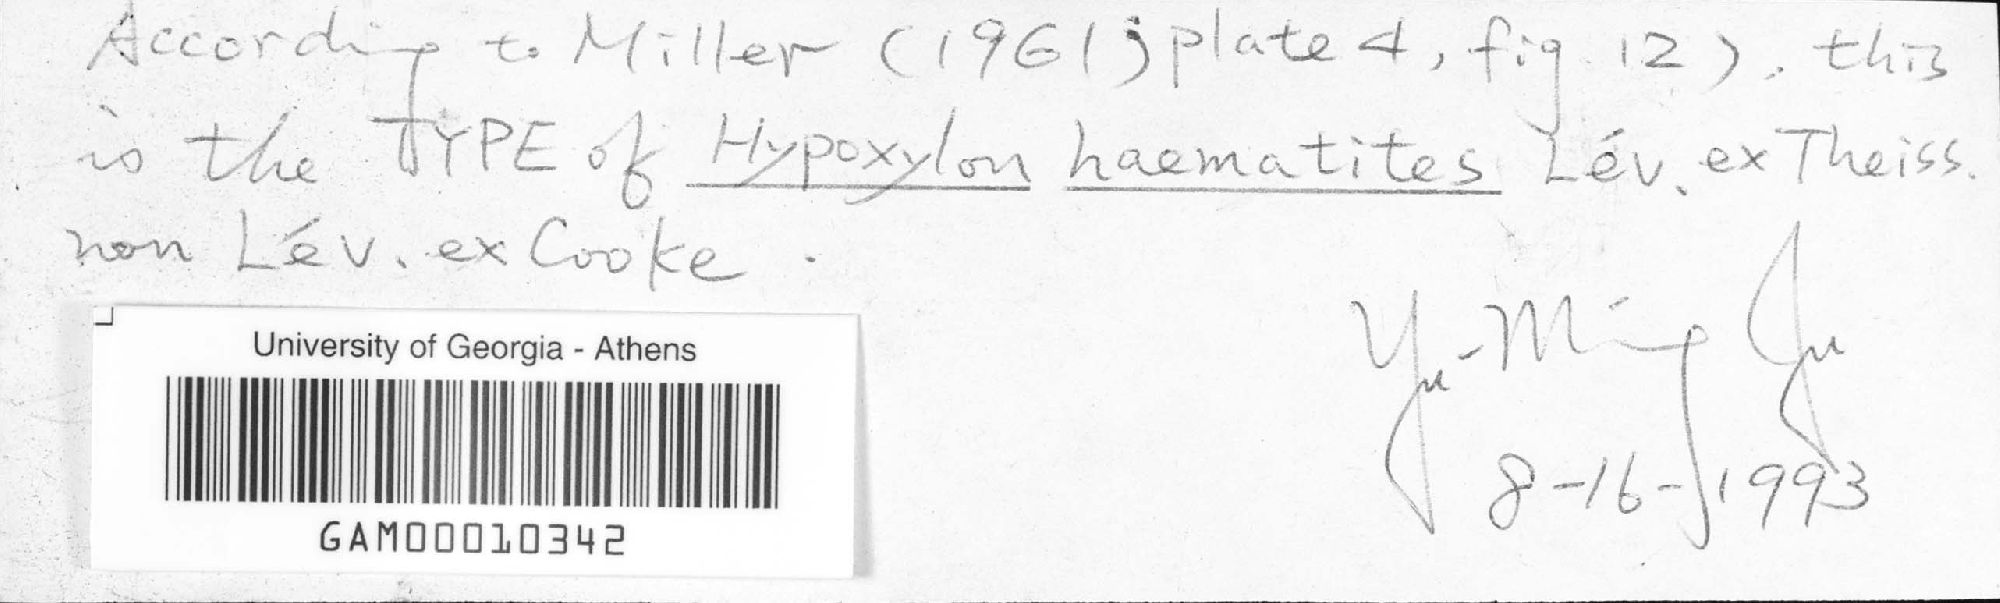 According to Miller (1961; plate 4, fig. 12), this
is the TYPE of Hypoxylon haematites Lév. ex Theiss.
non Lév. ex Cooke.
University of Georgia - Athens
GAM00010342
Yu-Ming Ju
8-16-1993